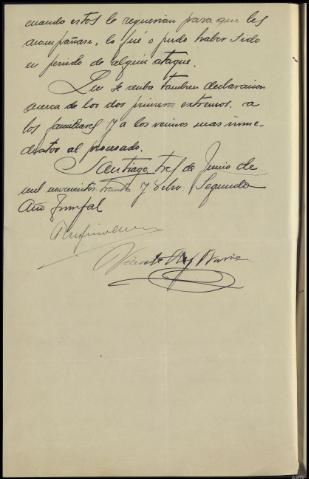 cuando estos lo requerian para que les
acompañase, lo fué o pudo haber sido
en periodo de algún ataque.
Que se reciba tambien declaracion
acerca de los dos primeros extremos, a
los familiares y a los vecinos mas inme-
diatos al procesado.
Santiago tres de Junio de
mil novecientos treinta y ocho. Segundo
Año Triunfal